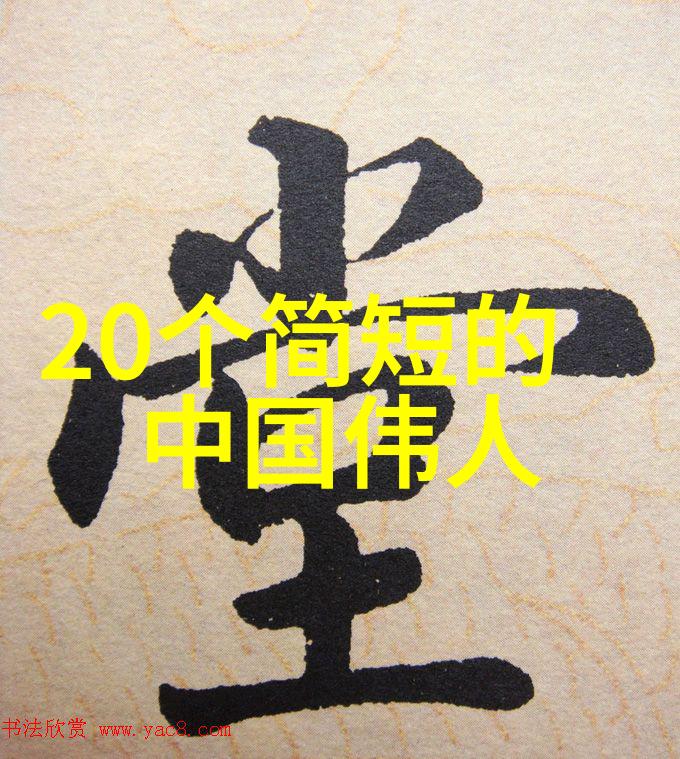 堂
20个简短的
中国伟人
书法欣赏 www.yac8.com